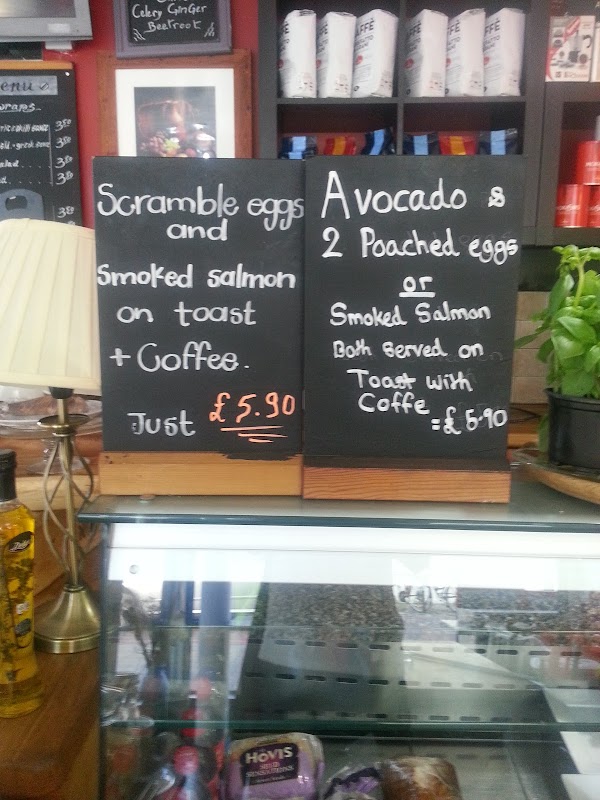 Celery Ginger
Beetroot
enu
wraps
3.50
3.50
3.50
3.50
3.50
Scramble eggs
and
Smoked salmon
on toast
+ Coffee.
Just £5.90
Avocado &
2 Poached eggs
or
Smoked Salmon
Both served on
Toast with
Coffe
=£5.90
HOVIS
SEED
SENSATIONS